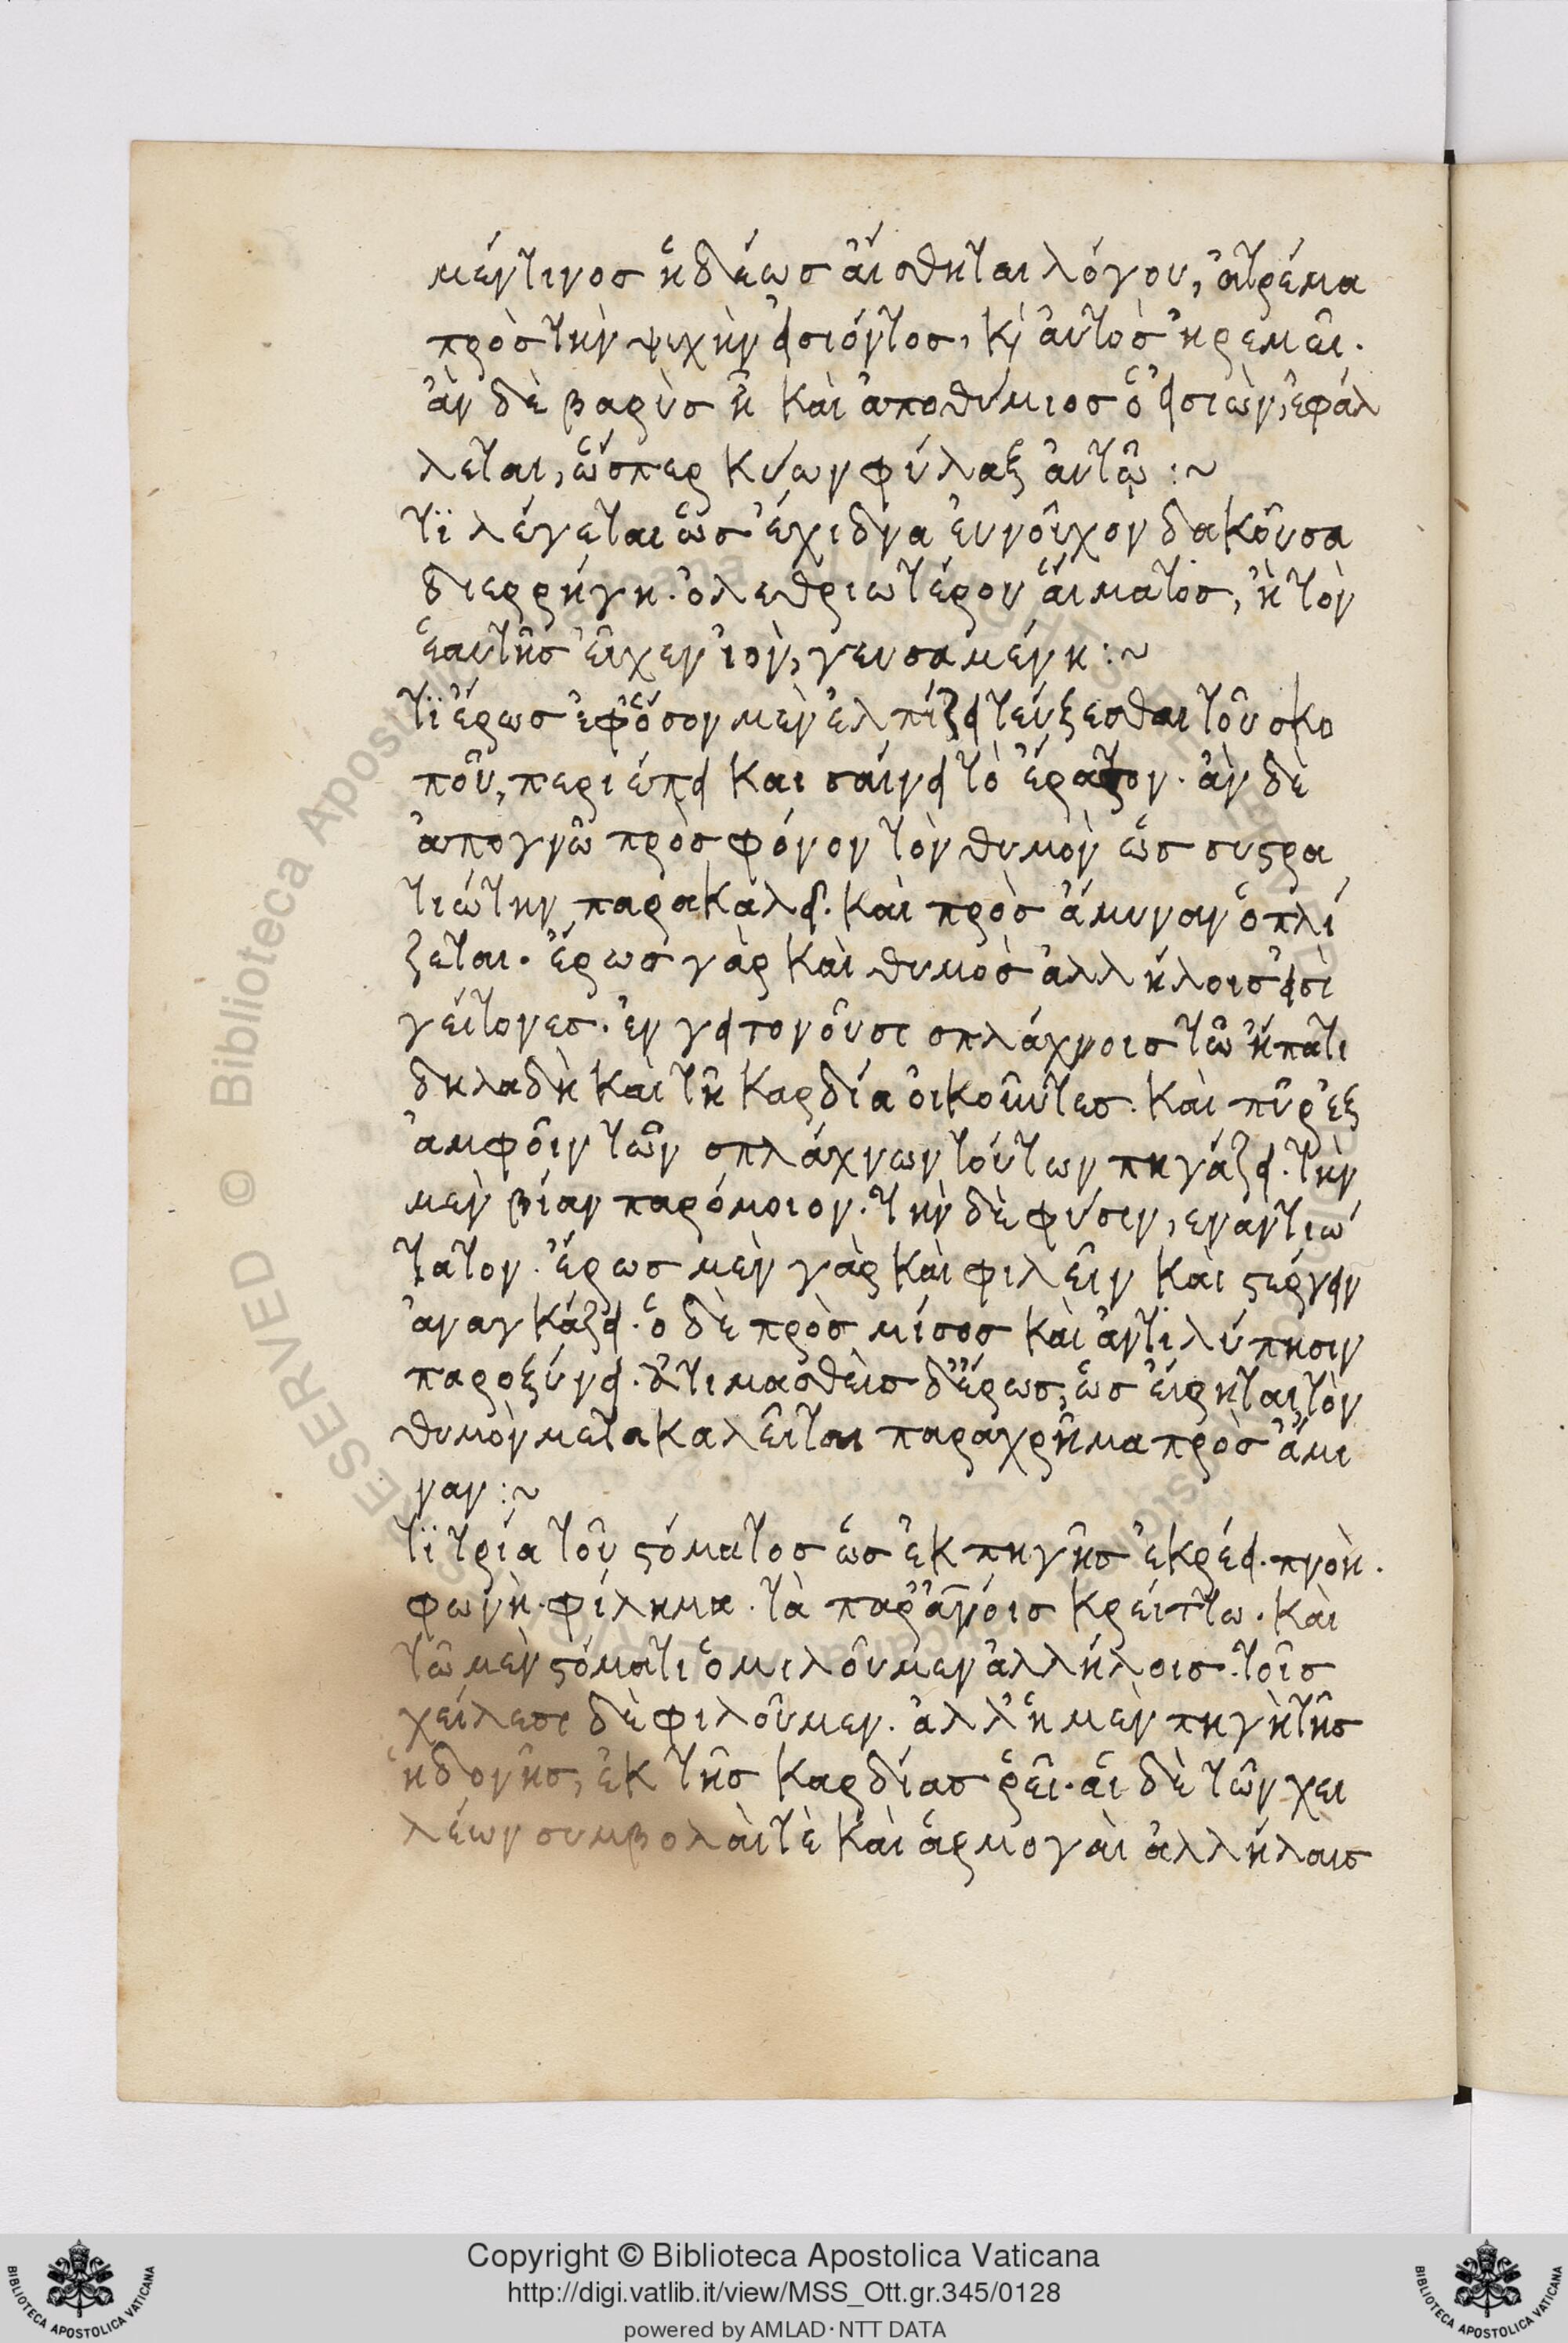 μέν τινος ἡδέως αἴσθηται λόγου, ἀτρέμα
πρὸς τὴν ψυχὴν εἰσιόντος, κ αὐτὸς ἠρεμεῖ.
ἂν δὲ βαρὺς ἢ καὶ ἀποθύμιος ὁ εἰσιὼν, ἐφάλ
λεται, ὥσπερ κύων φύλαξ αὐτῷ :~
τϊ λέγεται ὡς ἔχιδνα εὐνοῦχον δακοῦσα
διερρήγη. ὀλεθριωτέρου αἵματος, ἢ τὸν
ἑαυτῆς εἶχεν ἰὸν, γευσαμένη :~
τϊ ἔρως ἐφ' ὅσον μὲν ἐλπίζει τεύξεσθαι τοῦ σκο
ποῦ, περιέπει και σαίνει τὸ ἔρατον. ἂν δὲ
ἀπογνῶ πρὸς φόνον τὸν θυμὸν ὡς συστρα
τιώτην παρακαλεῖ. καὶ πρὸς ἄμυναν ὁπλί
ζεται. ἔρως γὰρ καὶ θυμὸς ἀλλήλοις εἰσὶ
γείτονες. ἐν γειτονοῦσι σπλάχνοις τῶ ἥπατι
δηλαδὴ καὶ τῆ καρδία οἰκοῦντες. καὶ πῦρ ἐξ
ἀμφοῖν τῶν σπλάχνων τούτων πηγάζει. τὴν
μὲν βίαν παρόμοιον. τὴν δὲ φύσιν, εναντιώ
τατον. ἔρως μὲν γὰρ καὶ φιλεῖν καὶ στέργειν
ἀναγκάζει. ὁ δὲ πρὸς μίσος καὶ ἀντιλύπησιν
παροξύνει. ἀτιμασθεὶς δ' ἔρως, ὡς εἴρηται τὸν
θυμὸν μετακαλεῖται παραχρῆμα πρὸς ἄμι
ναν :~
τϊ τρία τοῦ στόματος ὡς ἐκ πηγῆς ἐκρέει. πνοὴ.
φωνὴ. φίλημα. τὰ παρ' ἀνοις κρείττω. καὶ
τῶ μὲν στόματι ὁμιλοῦμεν ἀλλήλοις. τοῖς
χείλεσι δὲ φιλοῦμεν. ἀλλ' ἡ μὲν πηγὴ τῆς
ἡδονῆς, ἐκ τῆς καρδίας ῥεῖ. αἱ δὲ τῶν χει
λέων συμβολαὶ τὲ καὶ ἁρμογαὶ ἀλλήλαις
Copyright © Biblioteca Apostolica Vaticana
http://digi.vatlib.it/view/MSS_Ott.gr.345/0128
powered by AMLAD·NTT DATA
BIBLIOTECA APOSTOLICA VATICANA
BIBLIOTECA APOSTOLICA VATICANA